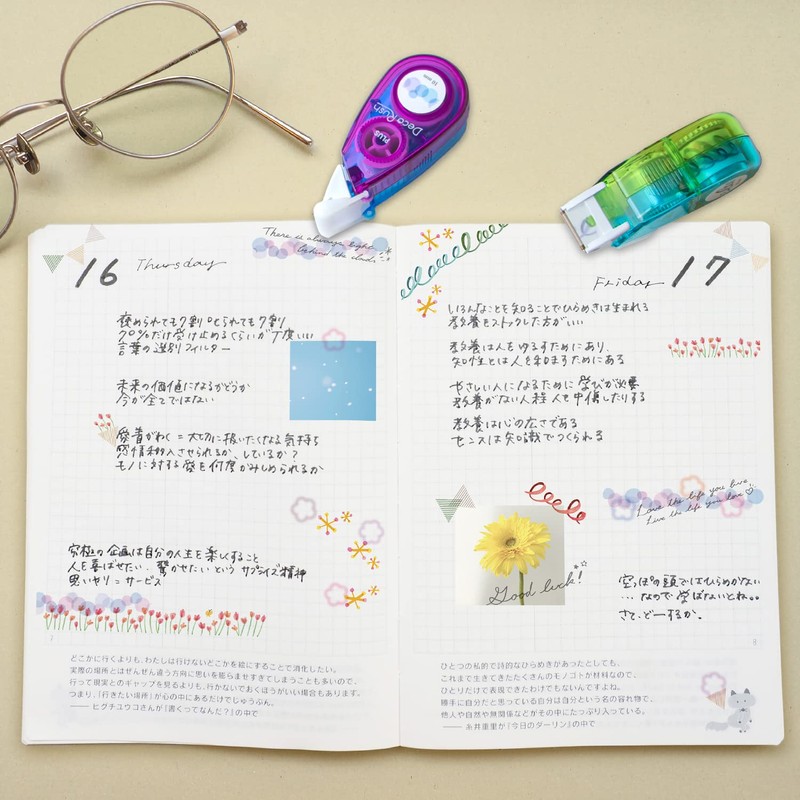 10 mm
Deco Rush
PLUS
16 Thursday
There is always light
behind the clouds
褒められても7割 叱られても7割
70%だけ受け止めるくらいが丁度いい
言葉の選別フィルター
未来の価値になるかどうか
今が全てではない
愛着がわく=大切に扱いたくなる気持ち
感情移入させられるか、しているか?
モノに対する愛を何度がみしめられるか
究極の企画は自分の人生を楽しくすること
人を喜ばせたい、驚かせたいという サプライズ精神
思いヤリ=サービス
どこかに行くよりも、わたしは行けないどこかを絵にすることで消化したい。
実際の場所とはぜんぜん違う方向に思いを膨らませすぎてしまうことも多いので、
行って現実とのギャップを見るよりも、行かないでおくほうがいい場合もあります。
つまり、「行きたい場所」が心の中にあるだけでじゅうぶん。
—— ヒグチユウコさんが『書くってなんだ?』の中で
Friday 17
いろんなことを知ることでひらめきは生まれる
教養をストックした方がいい
教養は人をゆるすためにあり、
知性とは人を和ますためにある
やさしい人になるために学びが必要
教養がない人程 人を中傷したりする
教養は心の広さである
センスは知識でつくられる
Love the life you live.
Live the life you love
Good luck!
空っぽの頭ではひらめかない
…なので学ばないとね。。
さて、どーするか。
ひとつの私的で詩的なひらめきがあったとしても、
これまで生きてきたたくさんのモノゴトが材料なので、
ひとりだけで表現できたわけでもないんですよね。
勝手に自分だと思っている自分は自分という名の容れ物で、
他人や自然や無関係などがその中にたっぷり入っている。
—— 糸井重里が『今日のダーリン』の中で